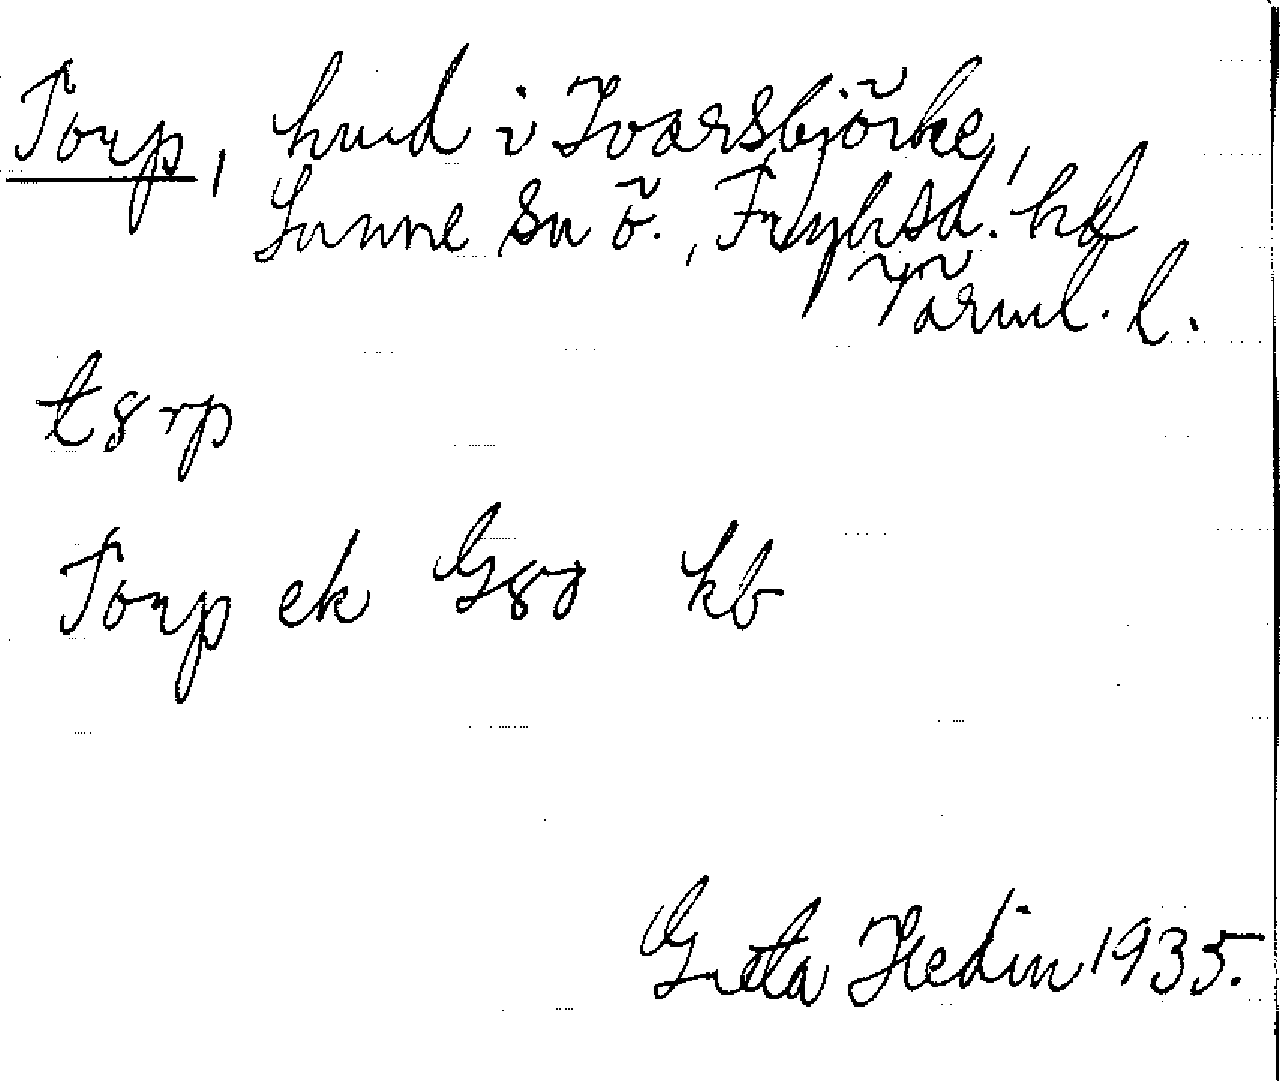 Torp, hmd i Ivarsbjörke,
Sunne sn ö., Fryksd. hd
Värml. l.
tɞrp
Torp ek Gso kb
Greta Hedin 1935.